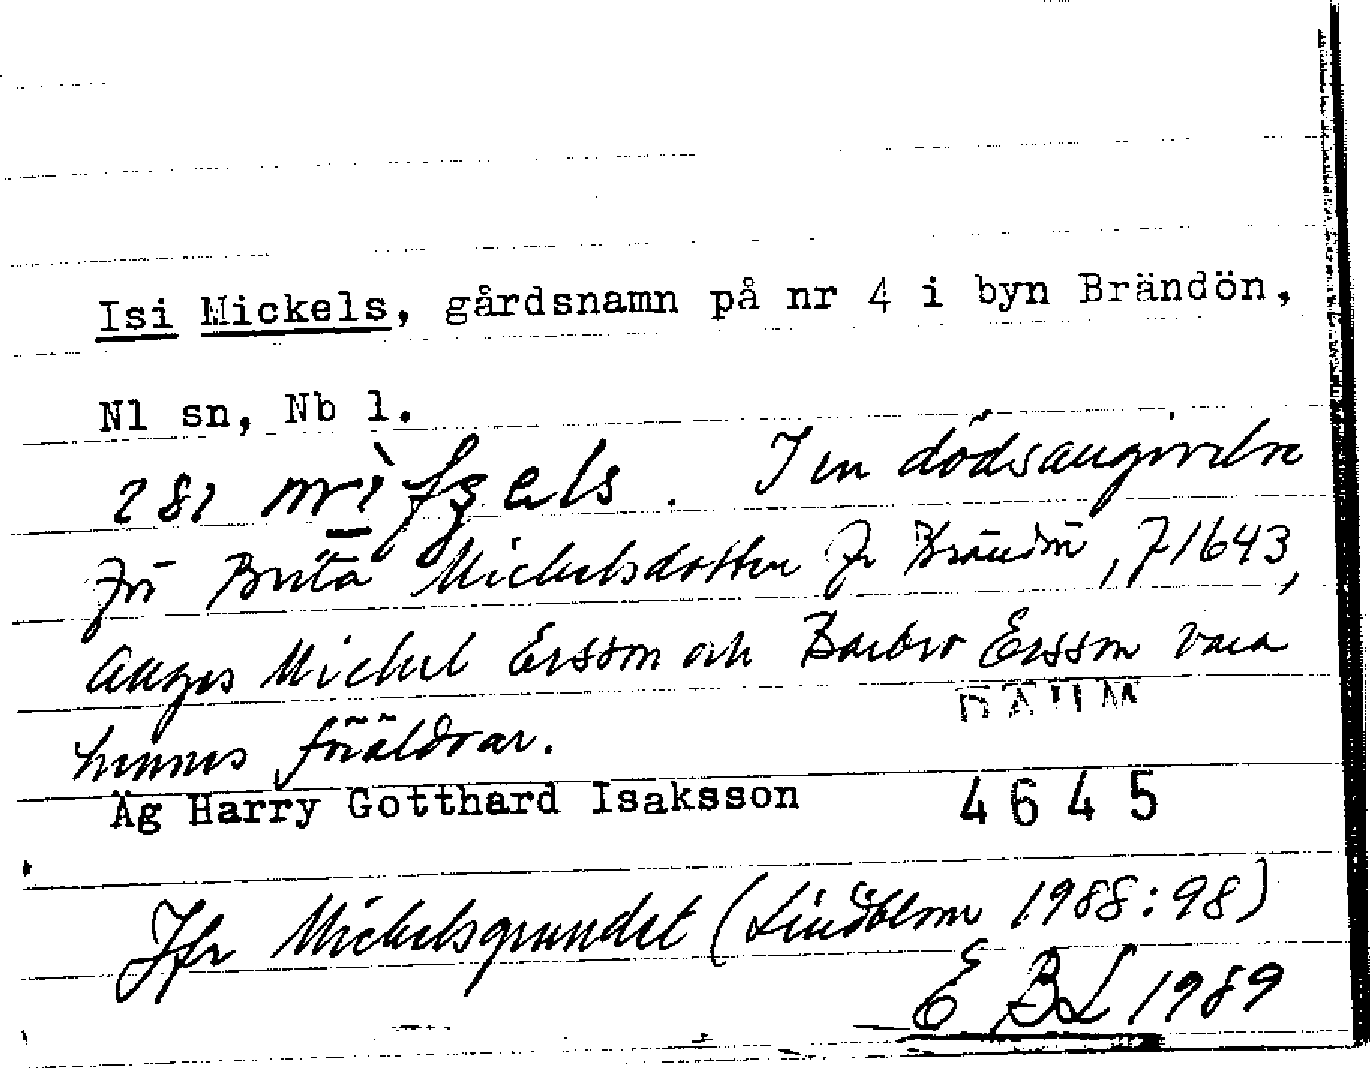 Isi Mickels, gårdsnamn på nr 4 i byn Brändön,
Nl sn, Nb l.
I en dödsangivelse
för Brita Mickelsdotter fr Brändön, f 1643,
anges Mickel Ersson och Barbro Ersson vara
hennes föräldrar.
DAUM
Äg Harry Gotthard Isaksson
4645
Jfr Mickelsgrundet (Lindblom 1988:98)
E BL 1989